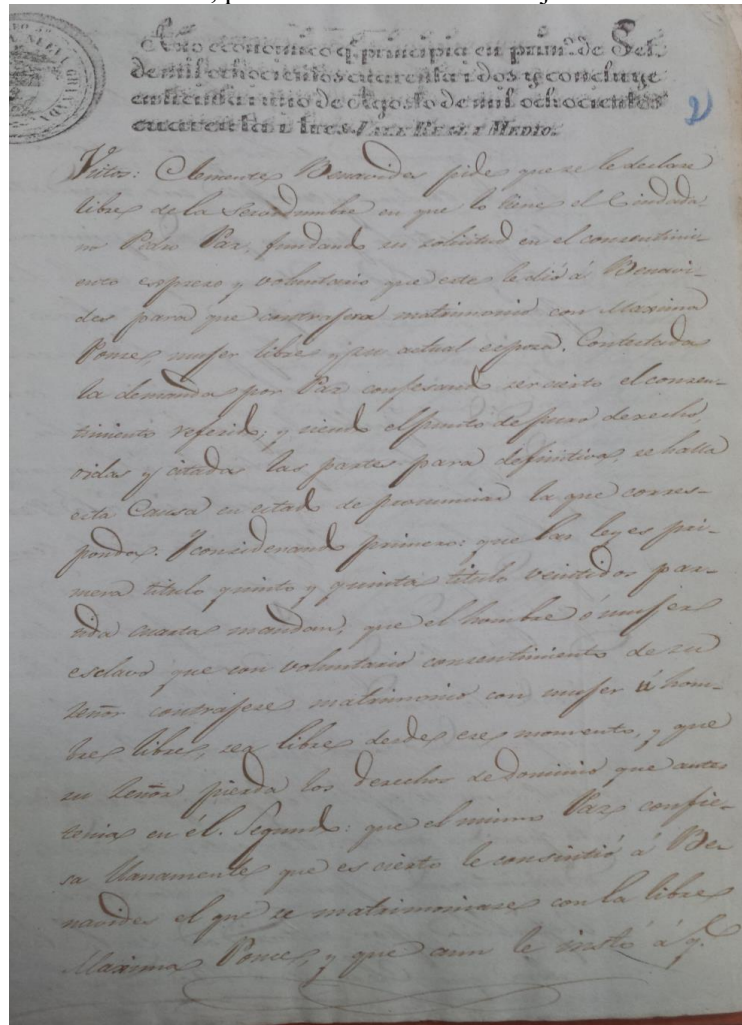 NUEVA GRANADA
Año economico q.e principia en prim.o de Set.
de mil ochocientos cuarenta i dos y concluye
en treinta i uno de Agosto de mil ochocientos
cuarenta i tres. VALE REAL I MEDIO.
2
Vistos: Clemente Benavides pide que se le declare
libre de la Servidumbre en que lo tiene el Ciudada-
no Pedro Paz, fundando su solicitud en el consentimi-
ento espreso y voluntario que este le dió á Benavi-
des para que contrajera matrimonio con Maxima
Ponce, mujer libre y su actual esposa. Contestada
la demanda por Paz confesando ser cierto el consen-
timiento referido; y siendo el punto de puro derecho,
oidas y citadas las partes para definitiva, se halla
esta Causa en estado de pronunciar la que corres-
ponda. Y considerando primero: que las leyes pri-
mera titulo quinto y quinta titulo veintidos par-
tida cuarta mandan, que el hombre ó mujer
esclavo que con voluntario consentimiento de su
Señor contrajese matrimonio con mujer ú hom-
bre libre, sea libre desde ese momento, y que
su Señor pierda los derechos de dominio que antes
tenia en él. Segundo: que el mismo Paz confie-
sa llanamente que es cierto le consintió á Be
navides el que se matrimoniase con la libre
Maxima Ponce, y que aun le instó á q.e